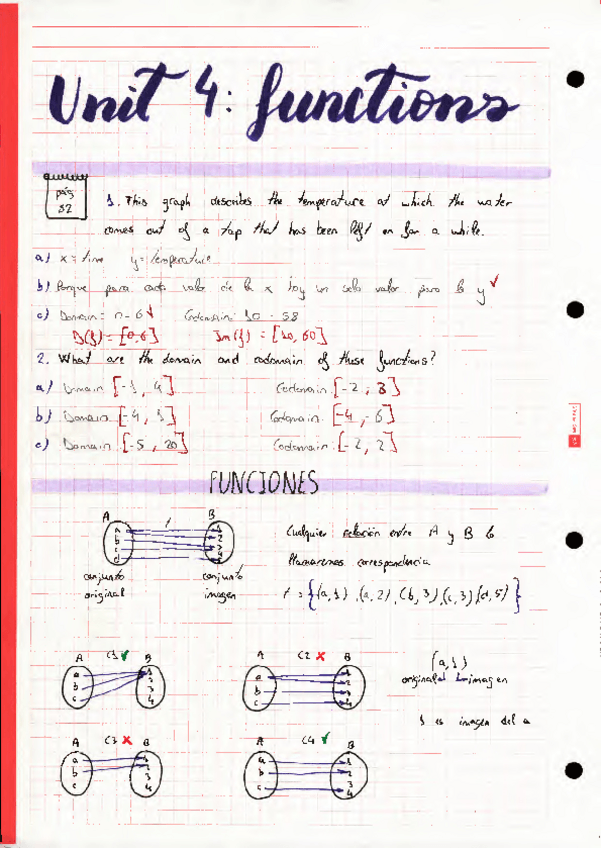 Unit 4: functions
pág 32
1. This graph describes the temperature at which the water
comes out of a tap that has been left on for a while.
a) x = time y = temperature
b) Porque para cada valor de la x hay un solo valor para la y ✓
c) Domain: 0-6 Codomain: 10 - 58
D(f) = [0,6] Im(f) = [10, 60]
2. What are the domain and codomain of these functions?
a) Domain [-1, 4] Codomain [-2, 3]
b) Domain: [-4, 1] Codomain: [-4, 6]
c) Domain: [-5, 20] Codomain: [-2, 2]
FUNCIONES
A f B
a 1
b 2
c 3
d
conjunto original
conjunto imagen
Cualquier relación entre A y B lo
llamaremos correspondencia
f = {(a,1), (a,2), (b,3), (c,3), (d,5)}
A C1 ✓ B
a 1
b 2
c 3
4
A C2 ✗ B
a 1
b 2
c 3
4
(a,1)
original imagen
1 es imagen del a
A C3 ✗ B
a 1
b 2
c 3
4
A C4 ✓ B
a 1
b 2
c 3
4